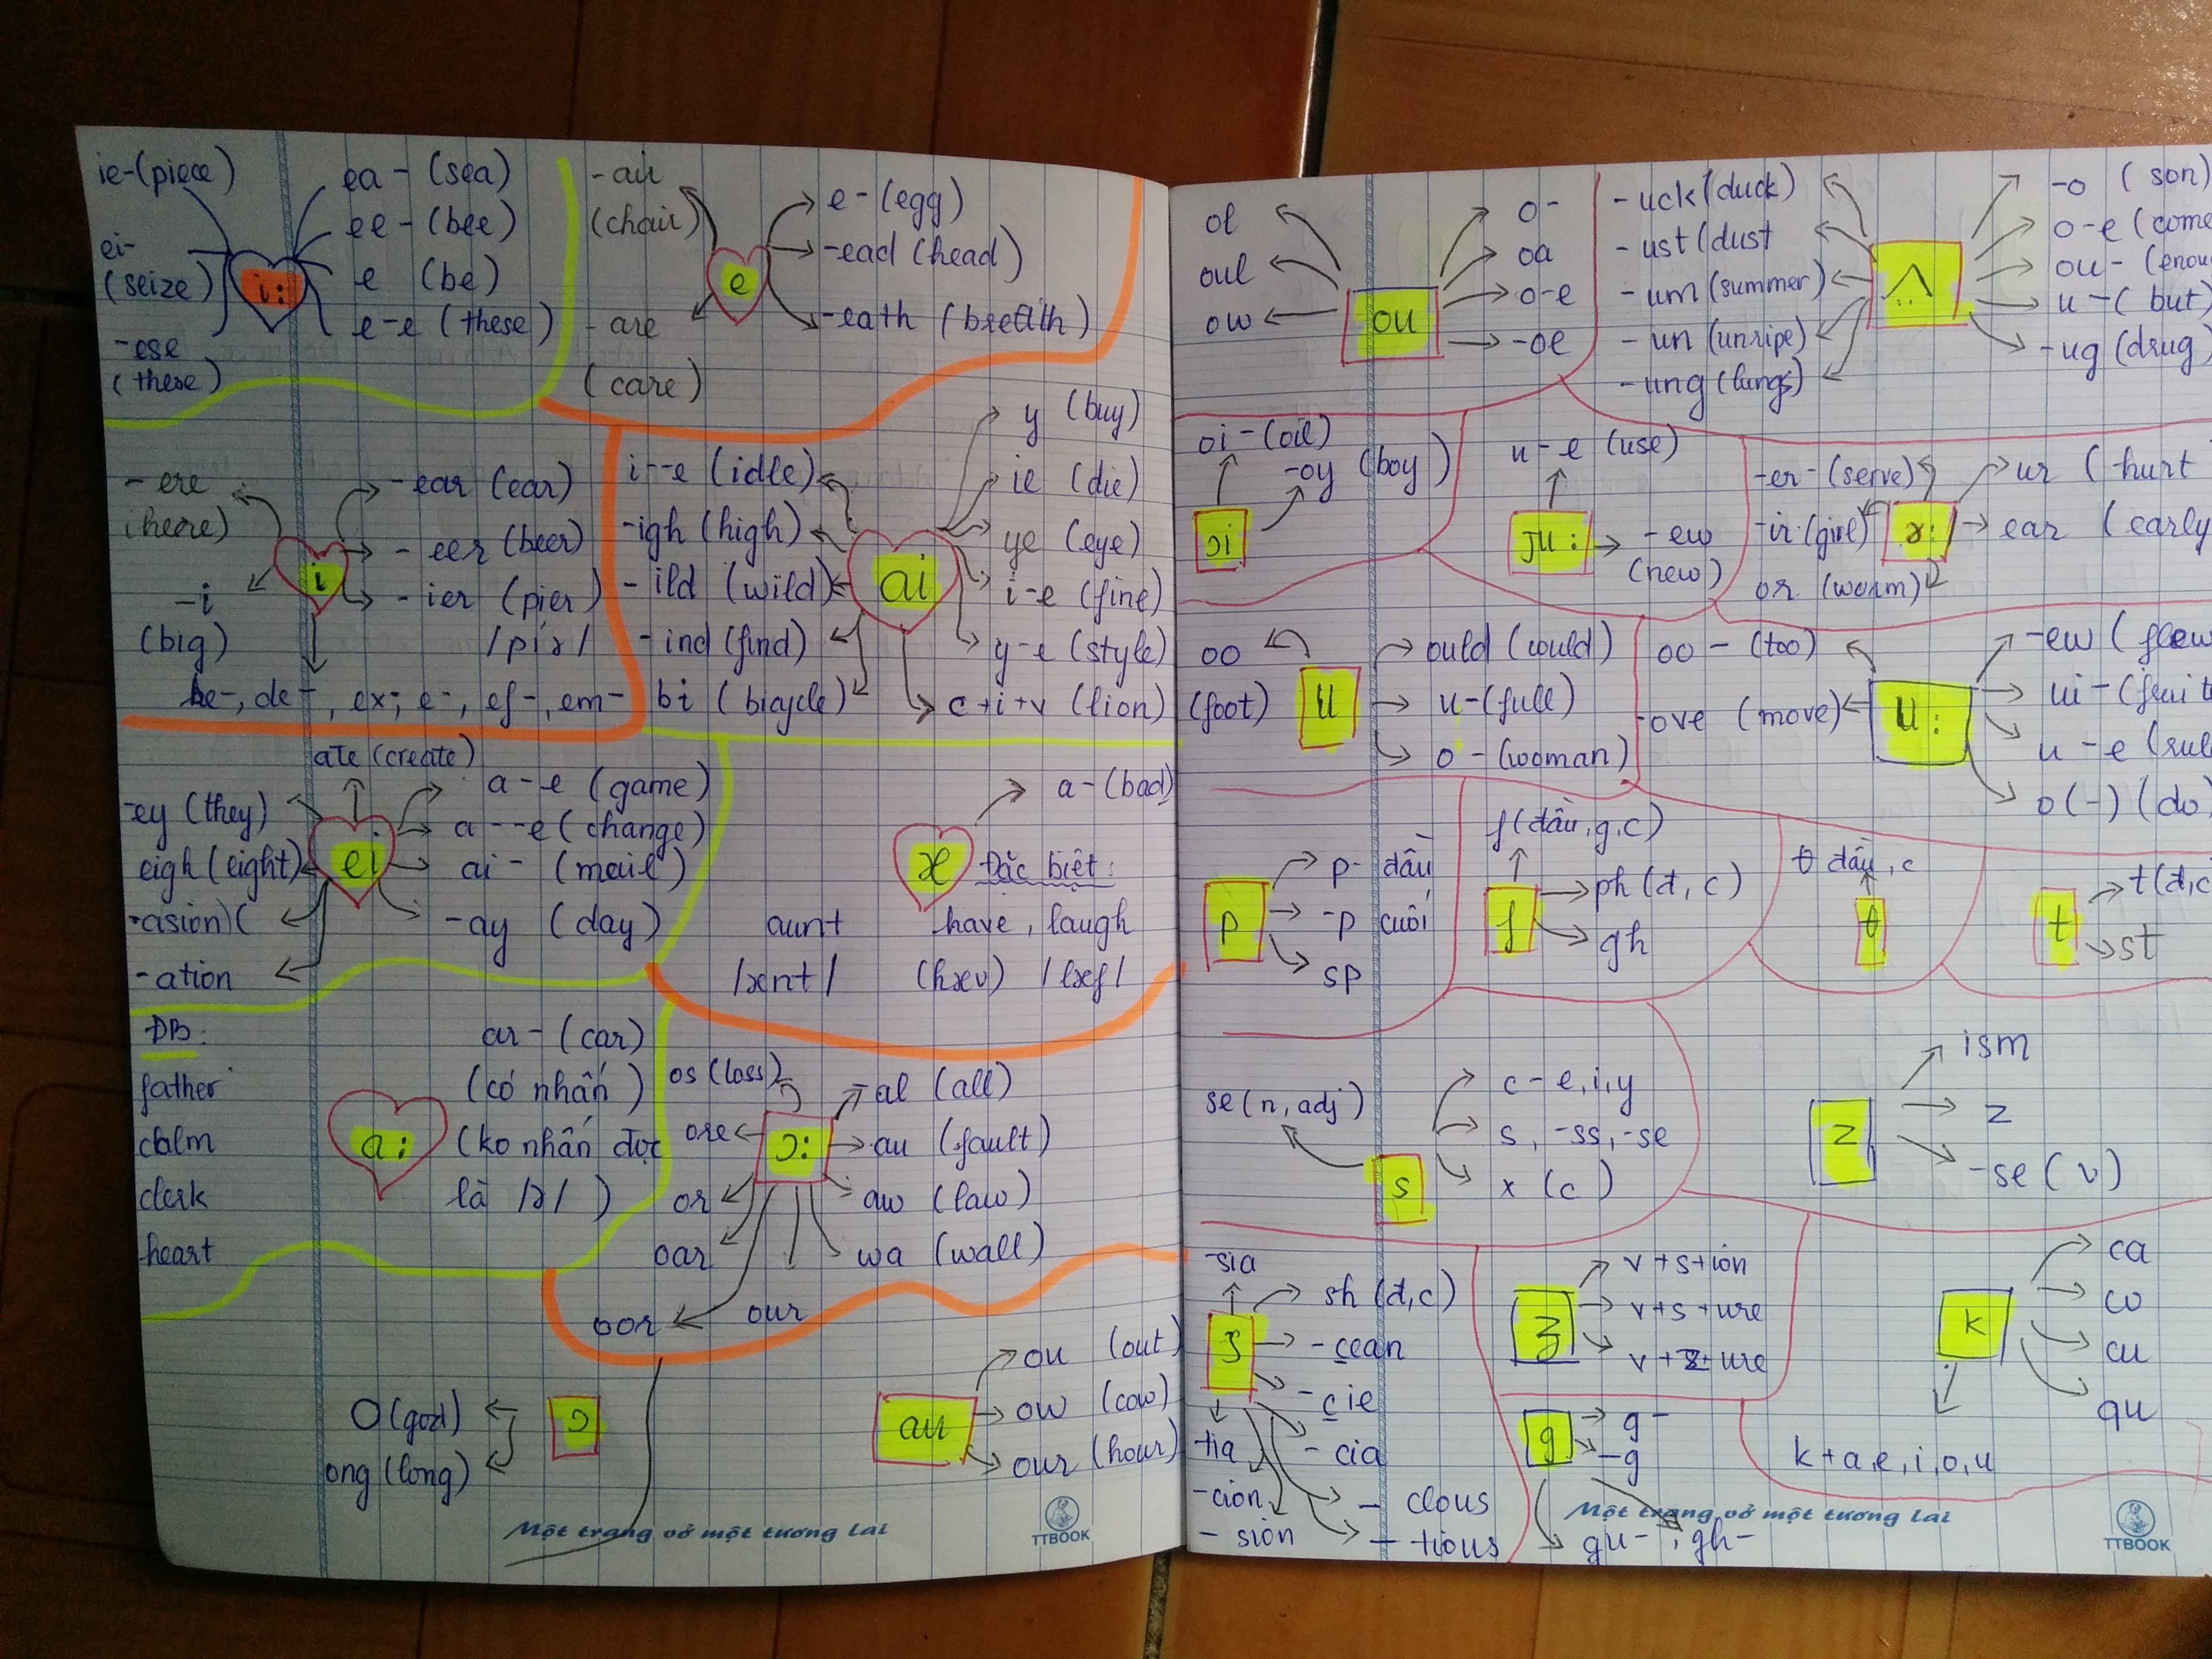 ie-(piece)
ei-
(seize)
-ese
(these)
i:
ea - (sea)
ee - (bee)
e (be)
e-e (these)
-air
(chair)
-are
(care)
e
e-(egg)
-ead (head)
-eath (breath)
-ere
(here)
-i
(big)
i
-ear (ear)
-eer (beer)
-ier (pier)
be-, de-, ex-, e-, ef-, em-
i--e (idle)
-igh (high)
-ild (wild)
-ind (find)
bi (bicycle)
ai
y (buy)
ie (die)
ye (eye)
i-e (fine)
y-e (style)
c+i+v (lion)
ate (create)
-ey (they)
eigh (eight)
-asion) (
-ation
ei
a-e (game)
a--e (change)
ai- (mail)
-ay (day)
æ
a-(bad)
Đặc biệt:
aunt have, laugh
/ænt/ (hæv) /læf/
ĐB:
father
calm
clerk
heart
a:
ar-(car)
(có nhấn)
(ko nhấn đọc
là /ə/)
os (loss)
ore
or
oar
oor
our
ɔ:
al (all)
au (fault)
aw (law)
wa (wall)
O(god)
ong (long)
ɔ
au
ou (out)
ow (cow)
our (hour)
Một trang vở một tương lai
TTBOOK
ol
oul
ow
ou
o-
oa
o-e
-oe
-uck (duck)
-ust (dust
-um (summer)
-un (unripe)
-ung (lungs)
ʌ
-o (son)
o-e (come
ou-
u-(but)
-ug (drug)
oi-(oil)
-oy (boy)
ɔi
u-e (use)
ju:
-ew
(new)
-er-(serve)
-ir-(girl)
or (worm)
ə:
ur (hurt
ear (early
oo
(foot)
u
ould (could)
u-(full)
o-(woman)
oo-(too)
-ove (move)
u:
-ew (flew
ui-(fruit
u-e
o(-) (do)
p
p- đầu
-p cuối
sp
f(đầu, g, c)
f
ph (đ, c)
gh
θ đầu, c
θ
t
t(đ, c
st
se (n, adj)
s
c-e, i, y
s, -ss, -se
x (c)
z
ism
z
-se (v)
-sia
ʃ
sh (đ, c)
-cean
-cie
-cia
-cious
-tious
-tia
-cion
-sion
ʒ
v+s+ion
v+s+ure
v+z+ure
g
g-
-g
gu-, gh-
k
ca
co
cu
qu
k+a, e, i, o, u
Một trang vở một tương lai
TTBOOK